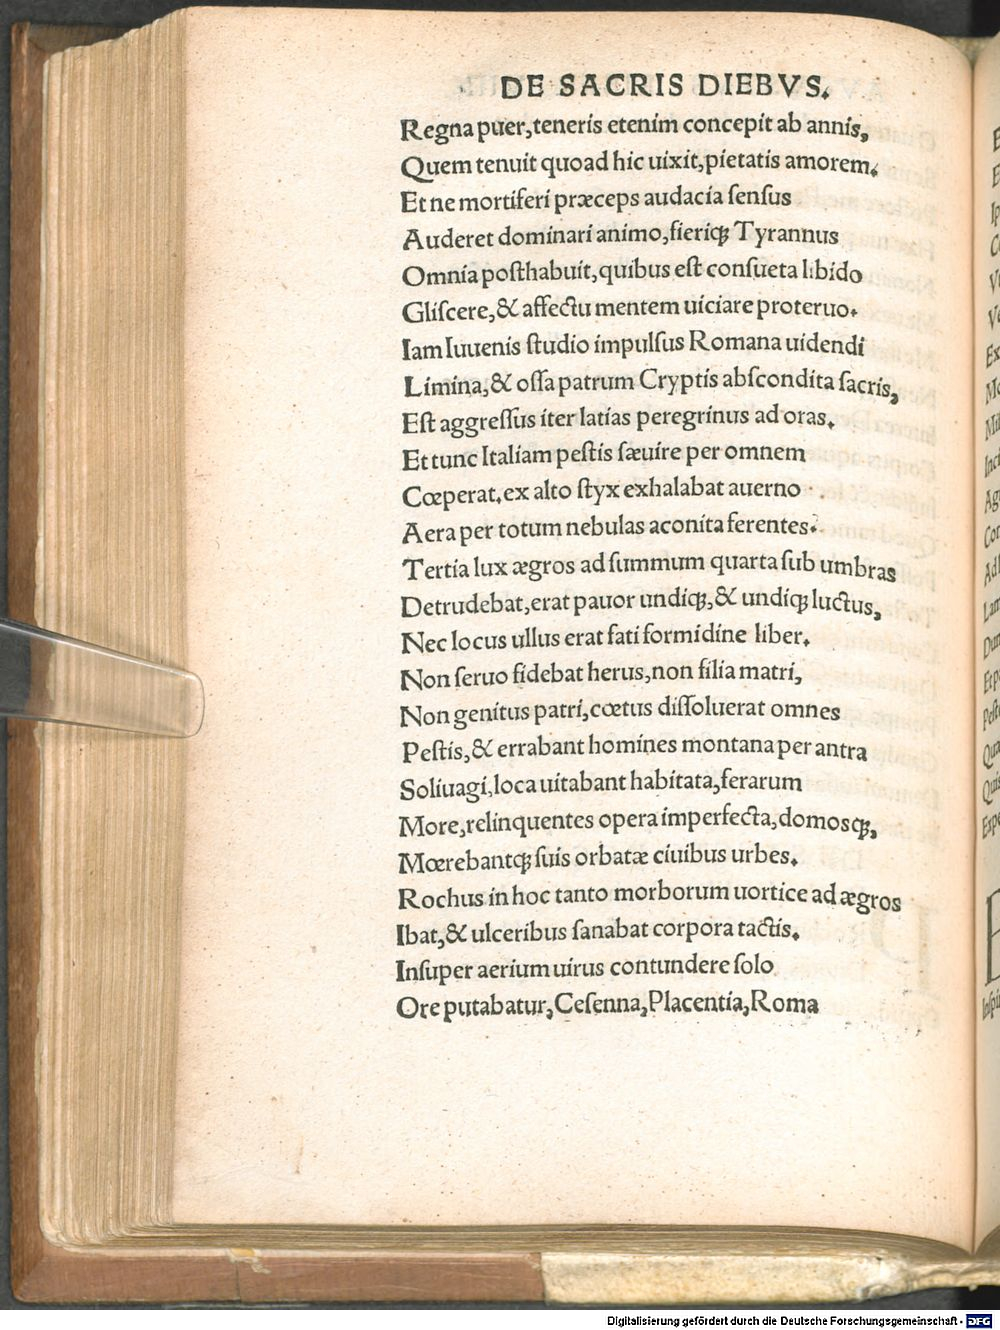 DE SACRIS DIEBVS.
Regna puer, teneris etenim concepit ab annis,
Quem tenuit quoad hic uixit, pietatis amorem.
Et ne mortiferi præceps audacia ſenſus
Auderet dominari animo, fieriqꝫ Tyrannus
Omnia poſthabuit, quibus eſt conſueta libido
Gliſcere, & affectu mentem uiciare proteruo.
Iam Iuuenis ſtudio impulſus Romana uidendi
Limina, & oſſa patrum Cryptis abſcondita ſacris,
Eſt aggreſſus iter latias peregrinus ad oras.
Et tunc Italiam peſtis ſæuire per omnem
Cœperat, ex alto ſtyx exhalabat auerno
Aera per totum nebulas aconita ferentes.
Tertia lux ægros ad ſummum quarta ſub umbras
Detrudebat, erat pauor undiqꝫ, & undiqꝫ luctus,
Nec locus ullus erat fati formidine liber.
Non ſeruo fidebat herus, non filia matri,
Non genitus patri, cœtus diſſoluerat omnes
Peſtis, & errabant homines montana per antra
Soliuagi, loca uitabant habitata, ferarum
More, relinquentes opera imperfecta, domosqꝫ,
Mœrebantqꝫ ſuis orbatæ ciuibus urbes.
Rochus in hoc tanto morborum uortice ad ægros
Ibat, & ulceribus ſanabat corpora tactis.
Inſuper aerium uirus contundere ſolo
Ore putabatur, Ceſenna, Placentia, Roma
Digitalisierung gefördert durch die Deutsche Forschungsgemeinschaft - DFG